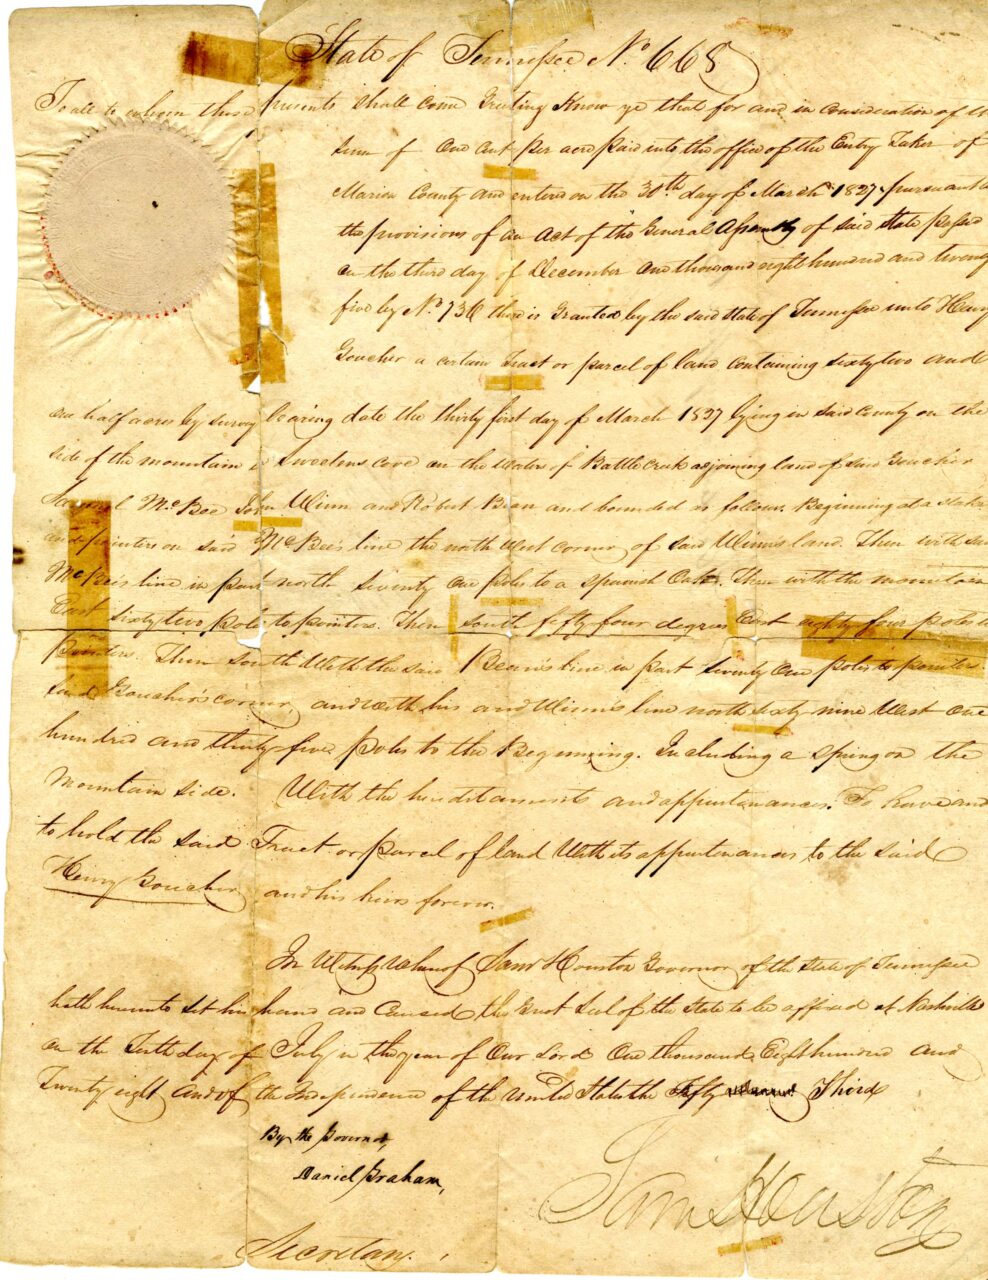 State of Tennessee No 668
To all to whom these presents shall come Greeting Know ye that for and in consideration of the
sum of One cent per acre paid into the office of the Entry Taker of
Marion County and entered on the 30th day of March 1827 pursuant to
the provisions of an Act of the General Assembly of said State passed
on the third day of December one thousand eight hundred and twenty
five by No 736 there is Granted by the said State of Tennessee unto Henry
Goucher a certain Tract or parcel of land containing sixty two and
one half acres by survey bearing date the thirty first day of March 1827 lying in said County on the
side of the mountain in Sweetens cove on the waters of Battle Creek adjoining land of said Goucher
McBee John Winn and Robert Bean and bounded as follows. Beginning at a stake
and pointers on said McBee's line the north West corner of said Winn's land. Then with said
McBee's line in part north seventy one poles to a spanish Oak. Then with the mountain
East sixty two poles to pointers. Then south fifty four degrees East eighty four poles to
pointers. Then South With the said Bean's line in part seventy one poles to pointers.
said Goucher's corner, and with his and Winn's line north sixty nine West one
hundred and thirty five poles to the Beginning. Including a spring on the
Mountain side. With the hereditaments and appurtenances. To have and
to hold the said Tract or parcel of land With its appurtenances to the said
Henry Goucher and his heirs forever.
In Witness Whereof Sam Houston Governor of the State of Tennessee
hath hereunto set his hand and caused the Great Seal of the State to be affixed at Nashville
on the Tenth day of July in the year of Our Lord One thousand Eight hundred and
Twenty eight and of the Independence of the United States the Fifty Third
By the Governor,
Daniel Graham,
Sam Houston
Secretary.